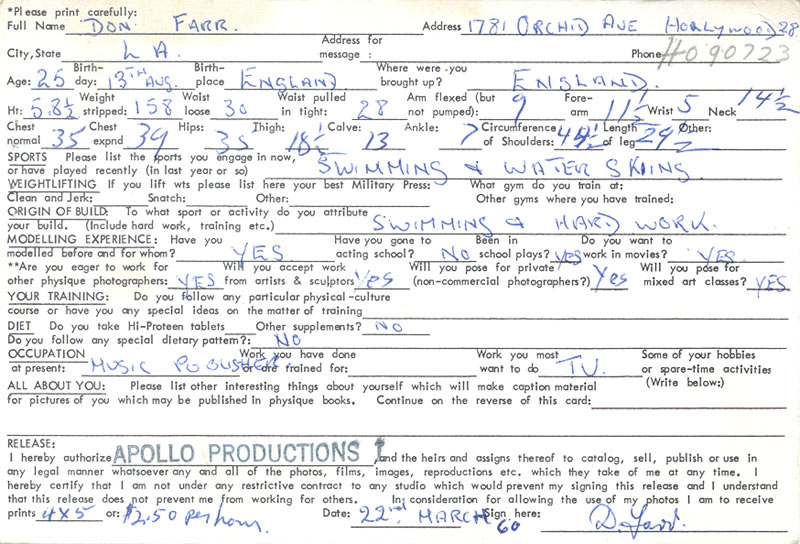 *Please print carefully:
Full Name DON FARR. Address 1781 ORCHID AVE HOLLYWOOD 28
City, State LA. Address for message : Phone HO 90723
Age: 25 Birth-day: 13TH AUG. Birth-place ENGLAND Where were you brought up? ENGLAND.
Ht: 5.8½ Weight stripped: 158 Waist loose 30 Waist pulled in tight: 28 Arm flexed (but not pumped): 9 Fore-arm 11½ Wrist 5 Neck 14½
Chest normal 35 Chest expnd 39 Hips: 35 Thigh: 18½ Calve: 13 Ankle: 7 Circumference of Shoulders: 44½ Length of leg 29½ Other:
SPORTS Please list the sports you engage in now,
or have played recently (in last year or so) SWIMMING & WATER SKIING
WEIGHTLIFTING If you lift wts please list here your best Military Press: What gym do you train at:
Clean and Jerk: Snatch: Other: Other gyms where you have trained:
ORIGIN OF BUILD: To what sport or activity do you attribute
your build. (Include hard work, training etc.) SWIMMING & HARD WORK.
MODELLING EXPERIENCE: Have you modelled before and for whom? YES Have you gone to acting school? NO Been in school plays? yes Do you want to work in movies? YES.
**Are you eager to work for other physique photographers: YES Will you accept work from artists & sculptors yes Will you pose for private (non-commercial photographers?) Yes Will you pose for mixed art classes? YES
YOUR TRAINING: Do you follow any particular physical-culture
course or have you any special ideas on the matter of training
DIET Do you take Hi-Proteen tablets Other supplements? NO
Do you follow any special dietary pattern?: NO
OCCUPATION at present: MUSIC PUBLISHER. Work you have done or are trained for: Work you most want to do TV. Some of your hobbies or spare-time activities (Write below:)
ALL ABOUT YOU: Please list other interesting things about yourself which will make caption material
for pictures of you which may be published in physique books. Continue on the reverse of this card:
RELEASE:
I hereby authorize APOLLO PRODUCTIONS and the heirs and assigns thereof to catalog, sell, publish or use in
any legal manner whatsoever any and all of the photos, films, images, reproductions etc. which they take of me at any time. I
hereby certify that I am not under any restrictive contract to any studio which would prevent my signing this release and I understand
that this release does not prevent me from working for others. In consideration for allowing the use of my photos I am to receive
prints 4x5 or: $2.50 per hour. Date: 22nd MARCH 60 Sign here: D. Farr.